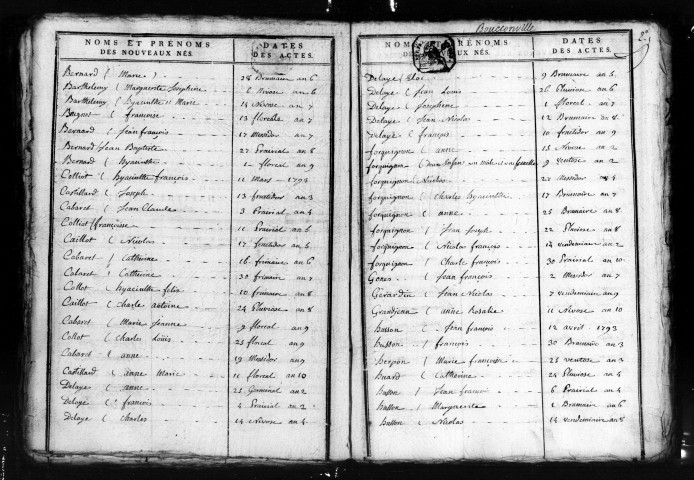 NOMS ET PRÉNOMS
DES NOUVEAUX NÉS.
DATES
DES ACTES.
Bernard ( Marie ) 28 Brumaire an 6
Barthelemy ( Marguerite Josephine 2 Nivose an 6
Barthelemy ( hyacinthe Marie 14 Nivose an 7
françoise 13 floreal an 7
Bernard ( Jean françois 17 Messidor an 7
Bernard Jean Baptiste 27 Prairial an 8
Bernard ( hyacinthe 1er floreal an 9
Colliot ( hyacinthe françois 11 Mars 1793
Castillard ( Joseph 13 fructidor an 3
Cabaret ( Jean Claude 3 Prairial an 4
Colliot ( françoise 11 Prairial an 5
Caillot ( Nicolas 17 fructidor an 5
Cabaret ( Catherine 16 frimaire an 6
Cabaret ( Catherine 30 frimaire an 7
Collot ( hyacinthe felix 10 frimaire an 8
Caillot ( Charle antoine 24 Pluviose an 8
Cabaret ( Marie Jeanne 9 floreal an 9
Collot ( Charles Louis 25 floreal an 9
Cabaret ( anne 19 Messidor an 9
Castillard ( anne Marie 11 floreal an 10
Delaye ( anne 21 Germinal an 2
Delaye ( françois 4 Prairial an 2
Delaye ( Charles 14 Nivose an 4
Bouconville
NOMS ET PRÉNOMS
DES NOUVEAUX NÉS.
DATES
DES ACTES.
Delaye ( Eloi 9 Brumaire an 5
Delaye ( Jean Louis 26 Pluviose an 6
Delaye ( Josephine 1 floreal an 7
Delaye ( Jean Nicolas 12 Brumaire an 8
Delaye ( françois 10 fructidor an 9
forquignon ( anne 15 Nivose an 2
forquignon 9 Ventose an 2
forquignon Nicolas 22 Messidor an 5
forquignon ( Charles hyacinthe 17 Brumaire an 7
forquignon ( anne 25 Brumaire an 8
forquignon ( Jean Joseph 22 Pluviose an 8
forquignon ( Nicolas françois 14 vendemiaire an 2
forquignon ( Charle françois 30 Prairial an 10
Jean françois 2 Messidor an 7
Gérardin ( Jean Nicolas 7 vendemiaire an 9
Grandjean ( anne Rosalie 11 Nivose an 10
Husson ( Jean françois 12 avril 1793
Husson ( françois 30 Brumaire an 3
Marie françoise 25 ventose an 3
Catherine 24 Pluviose an 4
Husson ( Jean françois 6 Prairial an 4
Husson ( Marguerite 1 Brumaire an 6
Husson ( Nicolas 14 vendemiaire an 8